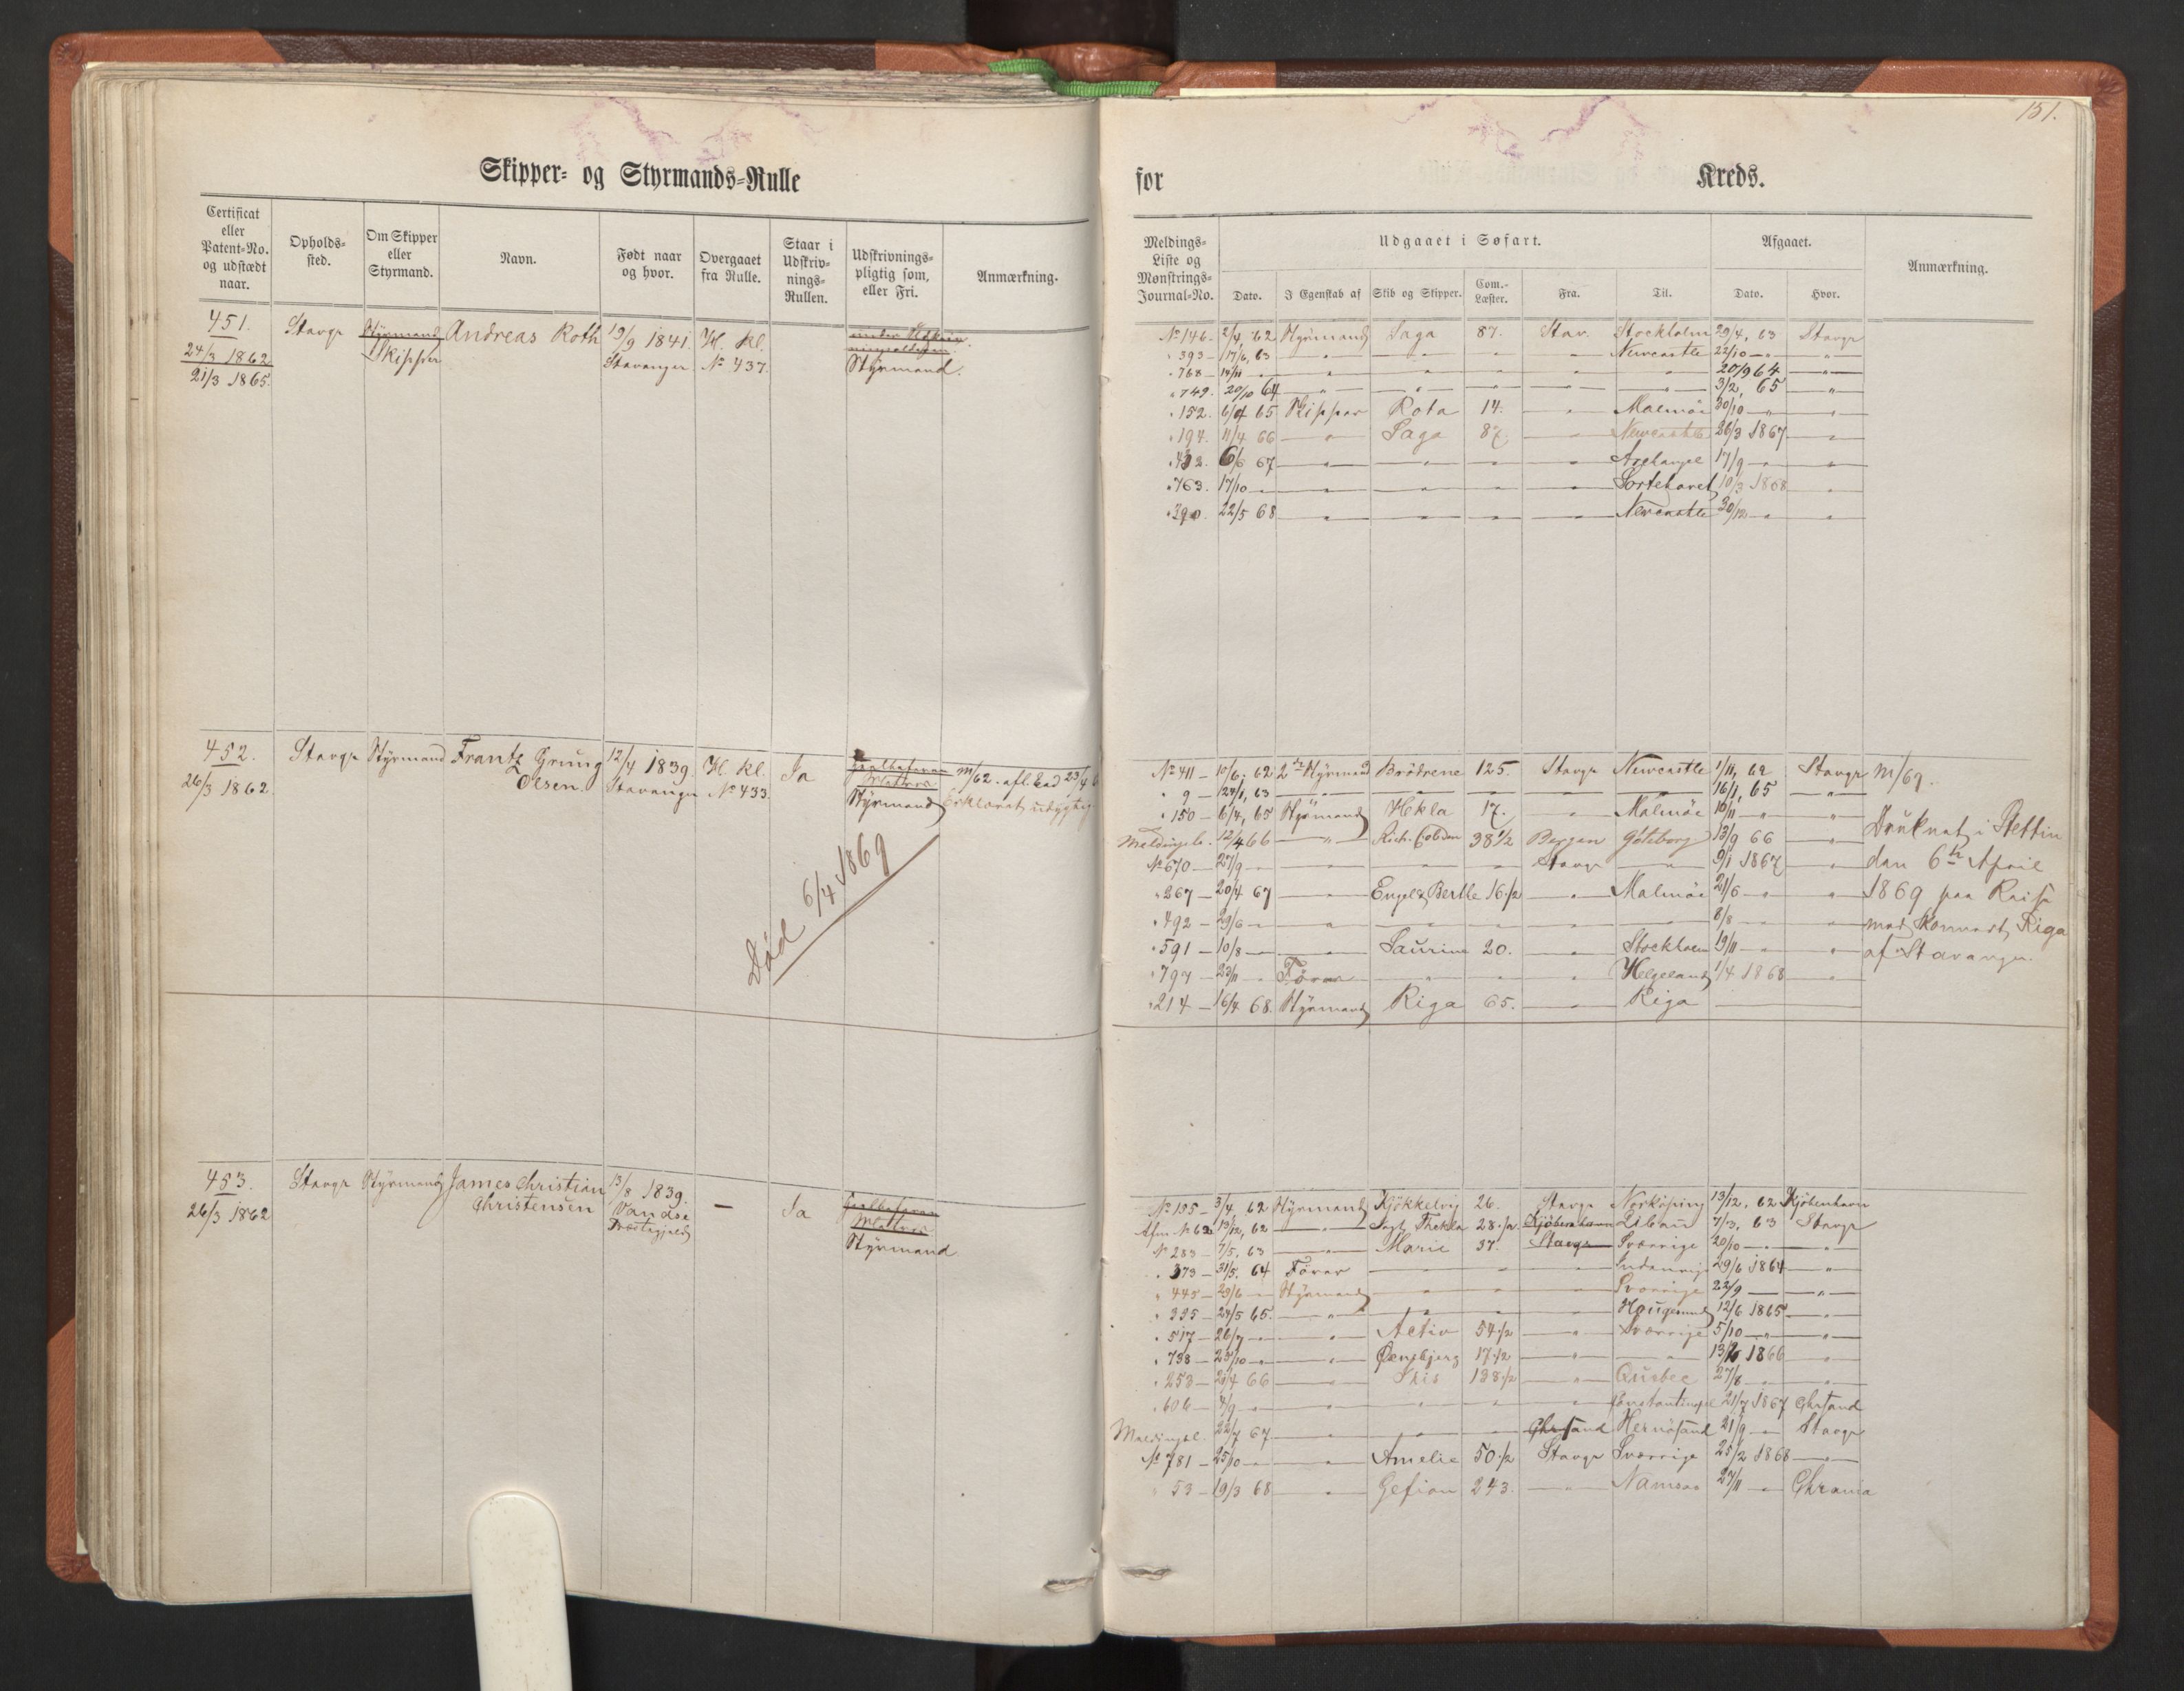 151.
Skipper- og Styrmands-Rulle for Kreds.
Certificat eller Patent-No. og udstædt naar.
Opholds-sted.
Om Skipper eller Styrmand.
Navn.
Født naar og hvor.
Overgaaet fra Rulle.
Staar i Udskriv-nings-Rullen.
Udskrivnings-pligtig som, eller Fri.
Anmærkning.
Meldings-Liste og Mønstrings-Journal-No.
Udgaaet i Søfart.
Dato. I Egenskab af Skib og Skipper. Com.-Læster. Fra. Til.
Afgaaet.
Dato. Hvor.
Anmærkning.
451. Stavgr Styrmand Andreas Roth 19/9 1841. H. kl.
24/3 1862 Skipper Stavanger № 437.
21/3 1865. Styrmand.
№ 146. 2/4, 62 Styrmand Saga 87. Stav. Stockholm 29/4, 63 Stavgr
" 393 — 17/6, 63 — " — " — " — " Newcastle 22/10 — " — "
" 768 — 14/11 — " — " — " — " — " 20/9 64 — "
" 749. 20/10 64 — " — " — " — " — " 3/2, 65 — "
" 152. 6/4 65 Skipper Rota 14. — " Malmöe 30/10 — " — "
" 194. 11/4 66 — " Saga 87. — " Newcastle 26/3 1867 — "
" 432. 6/6 67 — " — " — " — " 17/9 — " — "
" 763. 17/10 — " — " — " — " — " 10/3 1868 — "
" 390. 22/5 68 — " — " — " — " Newcastle 30/12 — " — "
452. Stavgr Styrmand Frantz Grung 12/4 1839. H. kl. Ja
26/3 1862. Olsen. Stavanger № 433. Matros
Styrmand Erklæret udygtig
Død 6/4 1869
№ 411 — 10/6, 62 2den Styrmand Brödrene 125. Stavgr Newcastle 1/11, 62 Stavgr M/69.
" 9 — 24/1, 63 — " — " — " — " — " 16/1, 65 — "
" 150 — 6/4, 65 Styrmand Hekla 17. — " Malmöe 16/11 — " — "
Meldingsl. 12/4 66 — " Rich. Cobden 38 1/2 Bergen Göteborg 13/9 66 — "
№ 670 — 27/9 — " — " — " Stavgr — " 9/1 1867 — "
" 267 — 20/4 67 — " Engel Bertle 16 1/2 — " Malmöe 21/6 — " — "
" 492 — 29/6 — " — " — " — " — " 8/8 — " — "
" 591 — 10/8 — " — " Laurine 20. — " Stockholm 19/11 — " — "
" 797 — 23/11 — " Förer — " — " — " Helgeland 1/4 1868 — "
" 214 — 16/4 68. Styrmand Riga 65. — " Riga
Druknet i Stettin
den 6te April
1869 paa Reise
med Skonnert Riga
af Stavanger.
453. Stavgr Styrmand James Christian 13/8 1839. — Ja
26/3 1862 Christensen Vandse Matros
Præstegjeld Styrmand
№ 195 — 3/4, 62 Styrmand Kjökkelvig 26. Stavgr Norköping 13/12, 62 Kjöbenhavn
Afm. № 62 13/12, 62 — " Jagt Thekla 28 1/2 Kjöbenhavn Libau 7/3, 63 Stavgr
№ 283 — 7/5, 63 — " Marie 37. Stavgr Sverrige 20/10 — " — "
" 373 — 31/5. 64 Förer — " — " — " Indenrigs 29/6 1864 — "
" 445 — 29/6 — " Styrmand — " — " — " Sverrige 22/9 — " — "
" 335 — 24/5 65. — " — " — " — " Haugesund 12/6 1865 — "
" 517 — 26/7 — " — " Activ 54 1/2 — " Sverrige 5/10 — " — "
" 738 — 23/10 — " — " 17 1/2 — " — " 13/2 1866 — "
" 253 — 21/4 66 — " Iris 138 1/2 — " Quebec 27/8 — " — "
" 606 — 4/9 — " — " — " — " — " Constantinopel 21/7 1867 Chrsand
Meldingsl. 22/7 67 — " — " — " Chrsand Hernösand 21/9 — " Stavgr
№ 781 — 25/10 — " — " Amelie 50 1/2 Stavgr Sverrige 25/2 1868 — "
" 53 — 19/3 68 — " Gefion 243. — " Namsos 27/11 — " Chrania